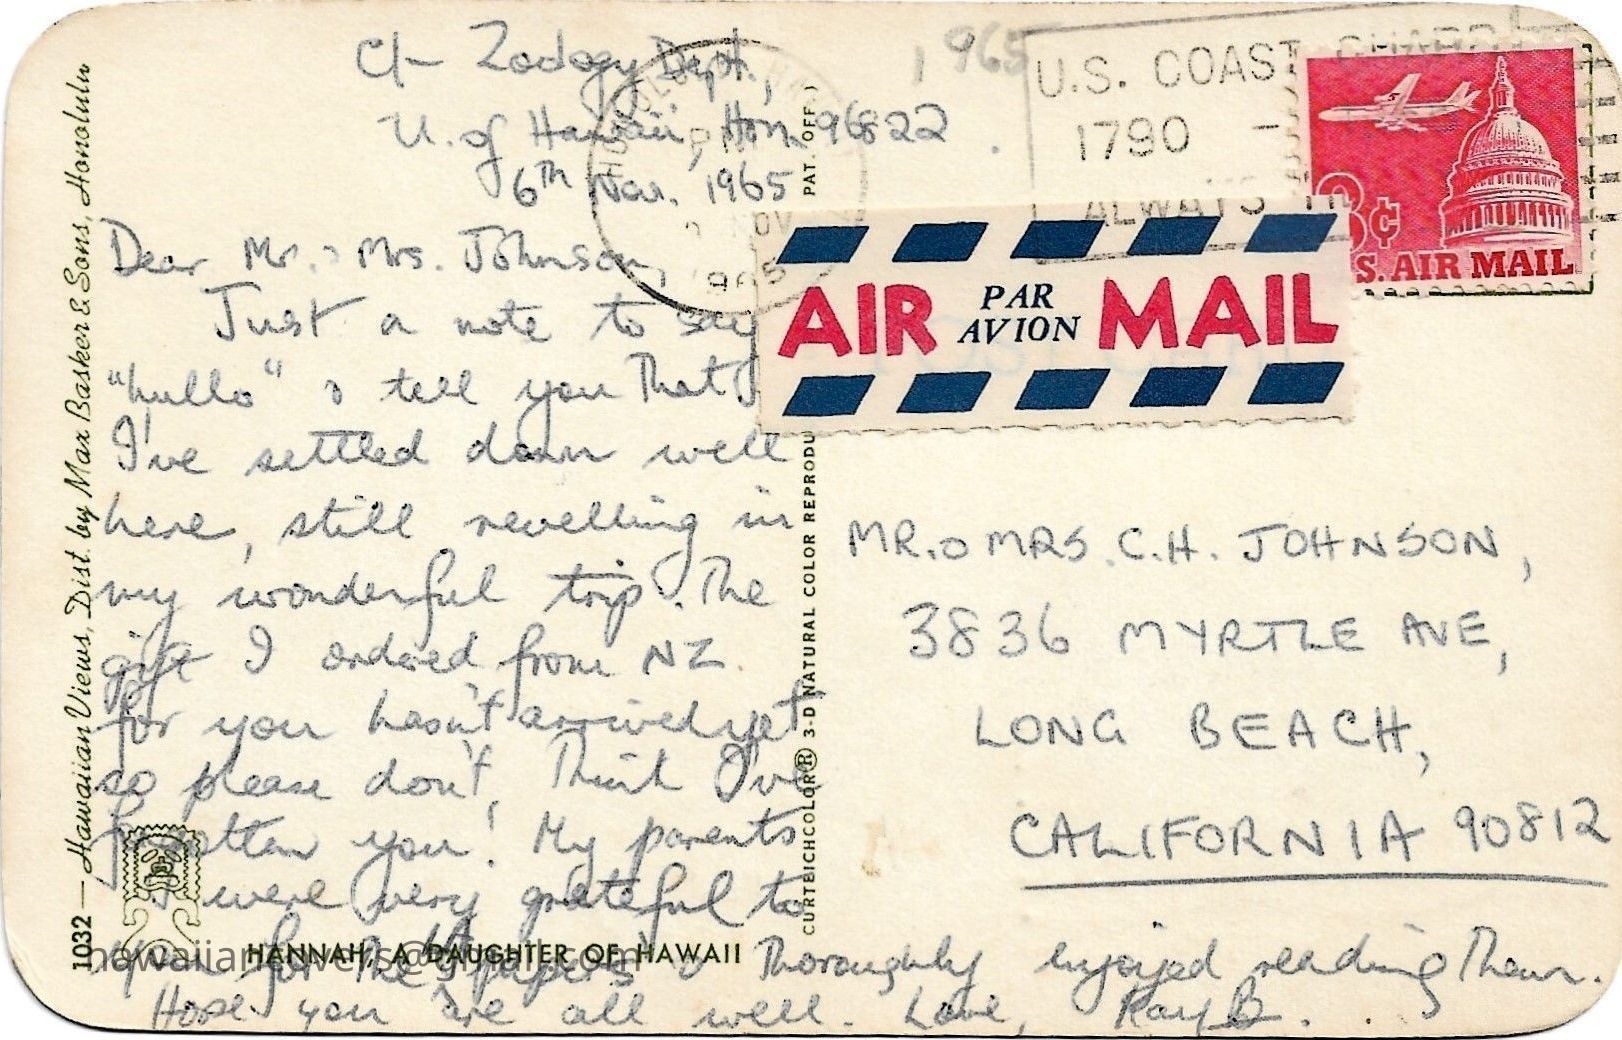 C/- Zoology Dept.,
U. of Hawaii, Hon. 96822
6th Nov. 1965
Dear Mr. & Mrs. Johnson,
Just a note to say
"hullo" & tell you that
I've settled down well
here, still revelling in
my wonderful trip. The
gift I ordered from NZ.
for you hasn't arrived yet
so please don't think I've
forgotten you! My parents
were very grateful to
you for the papers & thoroughly enjoyed reading them.
Hope you are all well. Love, Ray B.
HANNAH, A DAUGHTER OF HAWAII
hawaiianfevers@gmail.com
1032 — Hawaiian Views, Dist. by Max Basker & Sons, Honolulu
CURTEICHCOLOR® 3-D NATURAL COLOR REPRODU
PAT. OFF.)
1965
NOV
1965
U.S. COAST GUARD
1790 -
ALWAYS
8¢
S. AIR MAIL
AIR PAR AVION MAIL
MR. & MRS. C.H. JOHNSON,
3836 MYRTLE AVE,
LONG BEACH,
CALIFORNIA 90812